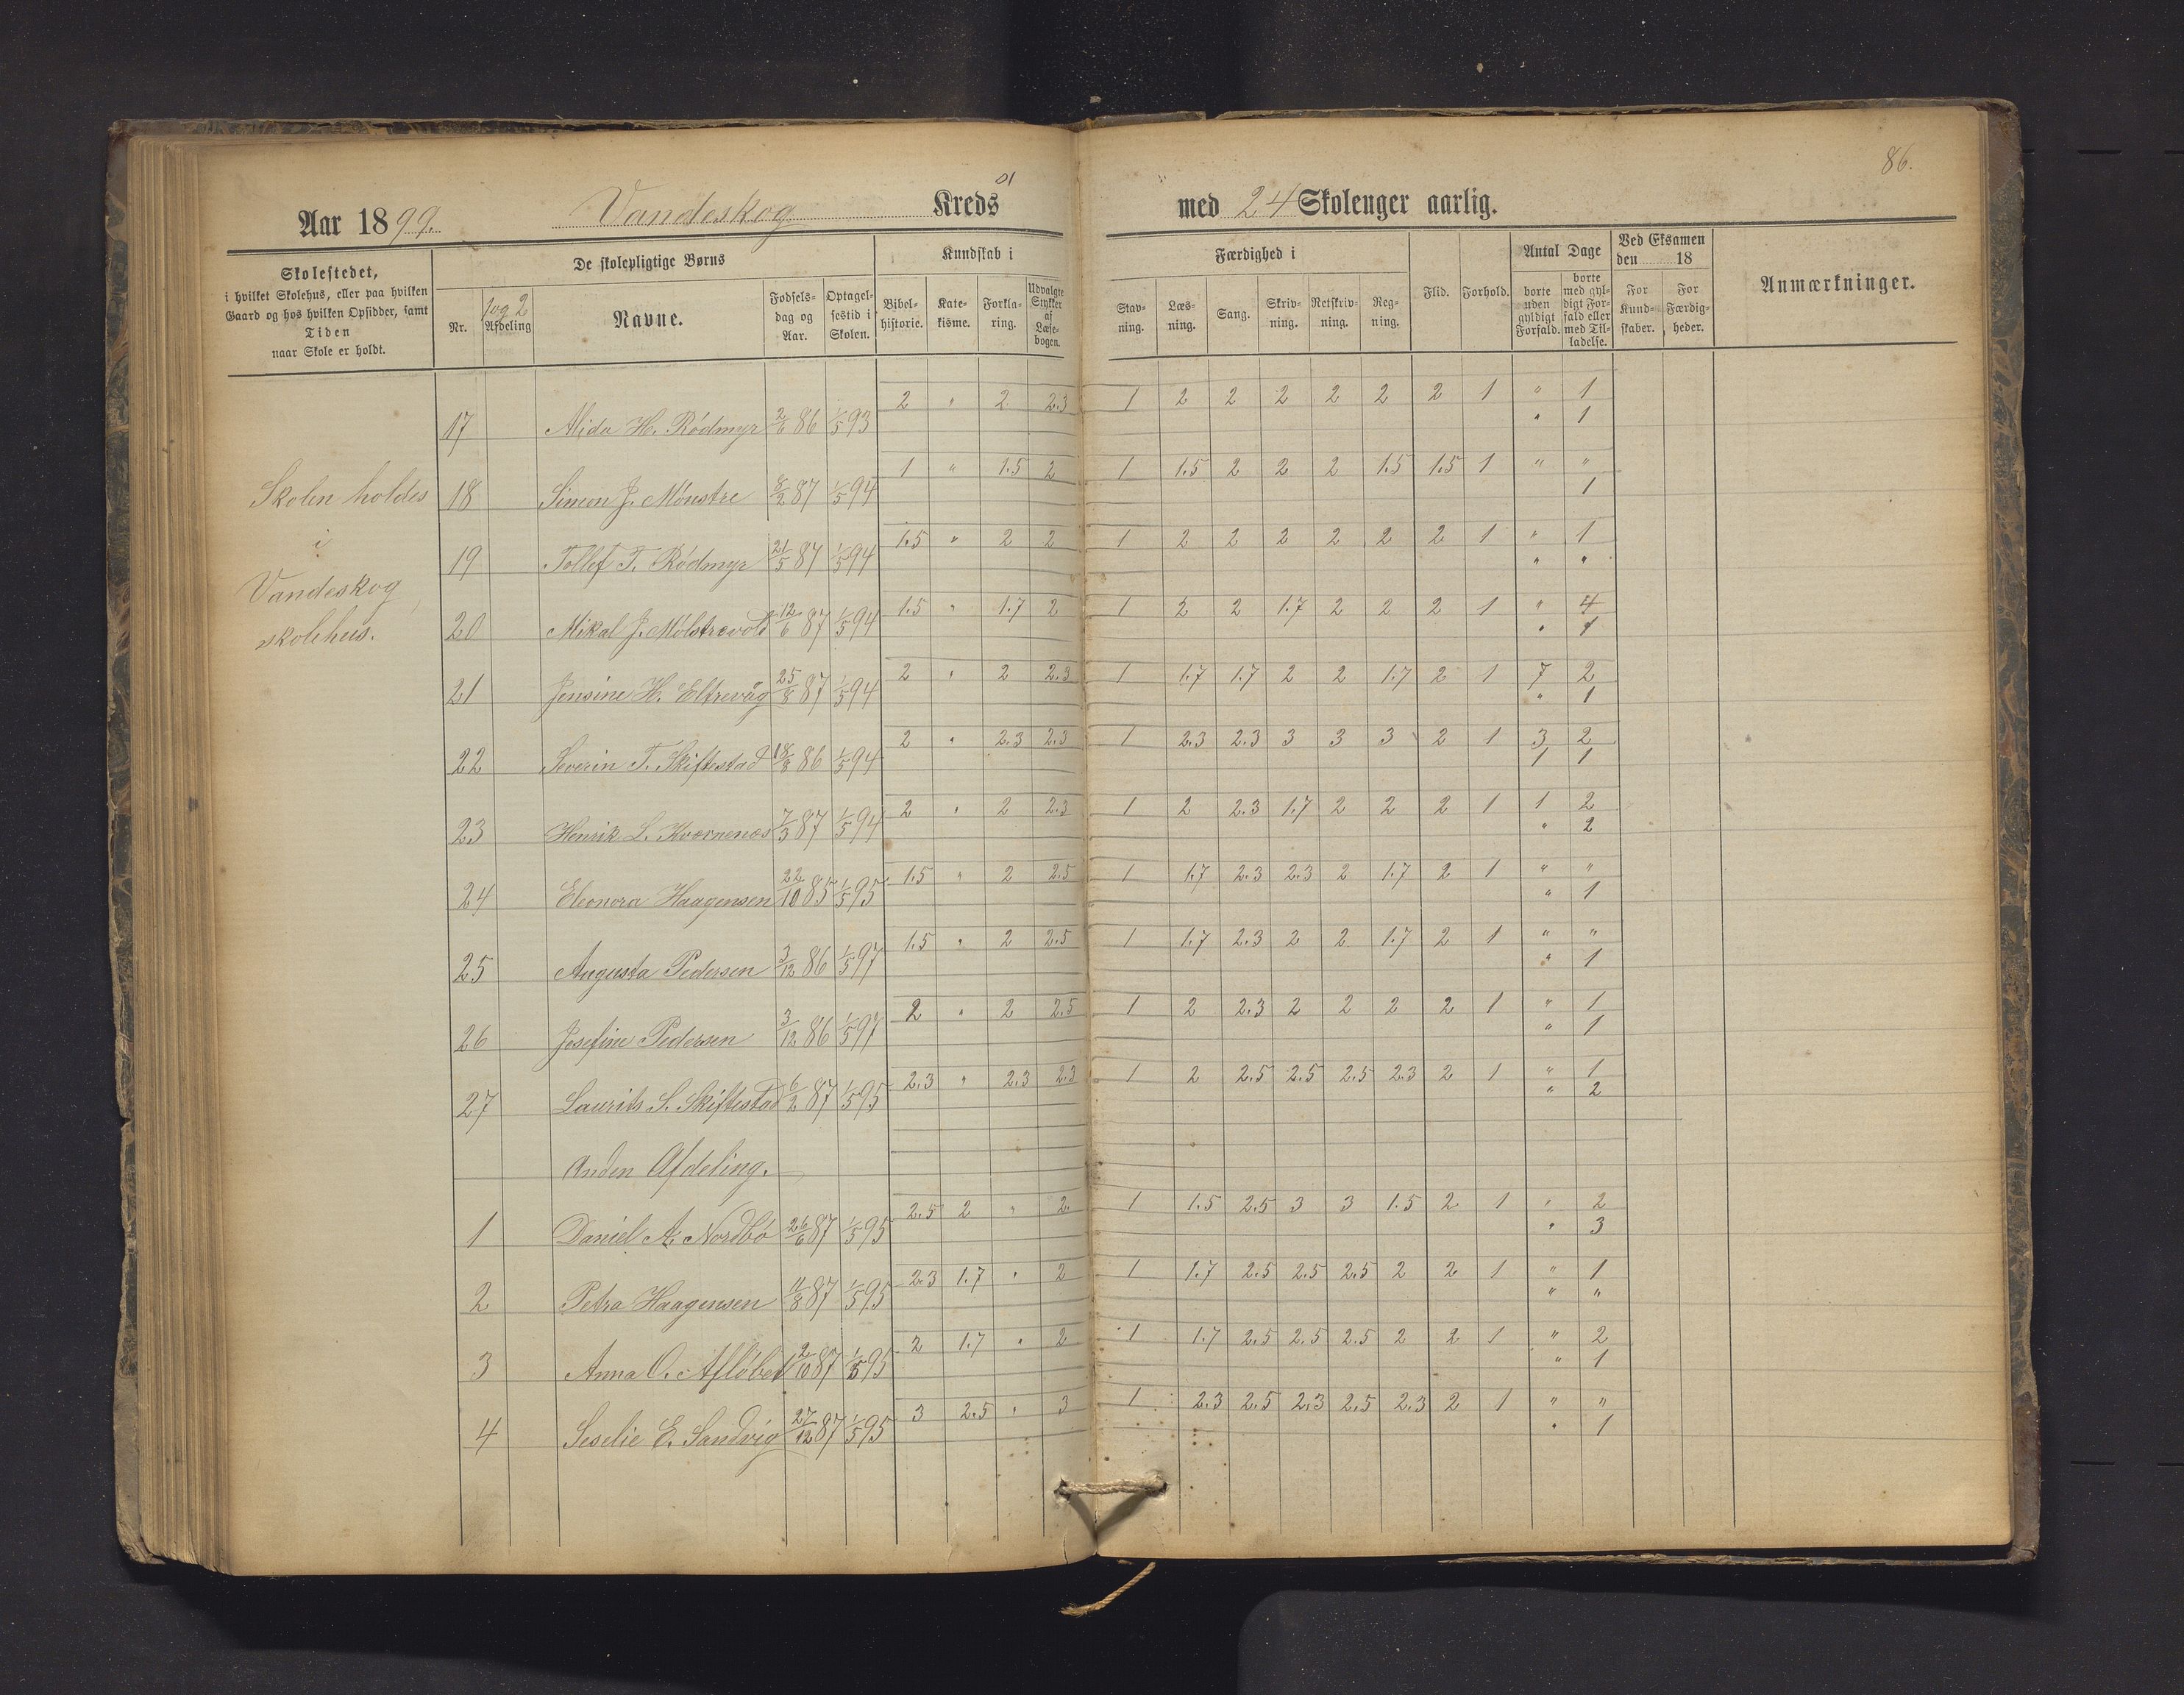 86.
Aar 1899. Vandeskog Kreds
med 24 Skoleuger aarlig.
Skolestedet,
i hvilket Skolehus, eller paa hvilken
Gaard og hos hvilken Opsidder, samt
Tiden
naar Skole er holdt.
De skolepligtige Børns
Nr.
1 og 2
Afdeling
Navne.
Fødsels-
dag og
Aar.
Optagel-
sestid i
Skolen.
Kundskab i
Bibel-
historie.
Kate-
kisme.
Forkla-
ring.
Udvalgte
Stykker
af
Læse-
bogen.
Færdighed i
Stav-
ning.
Læs-
ning.
Sang.
Skriv-
ning.
Retskriv-
ning.
Reg-
ning.
Flid.
Forhold.
Antal Dage
borte
uden
gyldigt
Forfald.
borte
med gyl-
digt For-
fald eller
med Til-
ladelse.
Ved Eksamen
den 18
For
Kund-
skaber.
For
Færdig-
heder.
Anmærkninger.
Skolen holdes
i
Vandeskog
skolehus.
17 Alida H. Rødmyr 2/6 86 1/5 93 2 " 2 2.3 1 2 2 2 2 2 2 1 " 1
" 1
18 Simon J. Mønstre 8/2 87 1/5 94 1 " 1.5 2 1 1.5 2 2 2 1.5 1.5 1 " "
1
19 Tollef T. Rødmyr 21/5 87 1/5 94 1.5 " 2 2 1 2 2 2 2 2 2 1 " 1
" "
20 Mikal J. Molstrevold 12/6 87 1/5 94 1.5 " 1.7 2 1 2 2 1.7 2 2 2 1 " 4
" 1
21 Jensine H. Eltrevåg 25/8 87 1/5 94 2 " 2 2.3 1 1.7 1.7 2 2 1.7 2 1 7 2
" 1
22 Severin T. Skiftestad 18/8 86 1/5 94 2 " 2.3 2.3 1 2.3 2.3 3 3 3 2 1 3 2
1 1
23 Henrik L. Kvernenæs 7/3 87 1/5 94 2 " 2 2.3 1 2 2.3 1.7 2 2 2 1 1 2
" 2
24 Eleonora Haagensen 22/10 85 1/5 95 1.5 " 2 2.5 1 1.7 2.3 2.3 2 1.7 2 1 " "
" 1
25 Augusta Pedersen 3/12 86 1/5 97 1.5 " 2 2.5 1 1.7 2.3 2 2 1.7 2 1 " "
" 1
26 Josefine Pedersen 3/12 86 1/5 97 2 " 2 2.5 1 2 2.3 2 2 2 2 1 " 1
" 1
27 Laurits S. Skiftestad 6/2 87 1/5 95 2.3 " 2.3 2.3 1 2 2.5 2.5 2.5 2.3 2 1 " 1
" 2
Anden Afdeling.
1 Daniel A. Nordbø 26/6 87 1/5 95 2.5 2 " 2. 1 1.5 2.5 3 3 1.5 2 1 " 2
" 3
2 Petra Haagensen 11/8 87 1/5 95 2.3 1.7 " 2 1 1.7 2.5 2.5 2.5 2 2 1 " 1
" "
3 Anna O. 2/10 87 1/5 95 2 1.7 " 2 1 1.7 2.5 2.5 2.5 2 2 1 " 2
" 1
4 Seselie E. Sandvig 27/12 87 1/5 95 3 2.5 " 3 1 2.3 2.5 2.3 2.5 2.3 2 1 " "
" 1